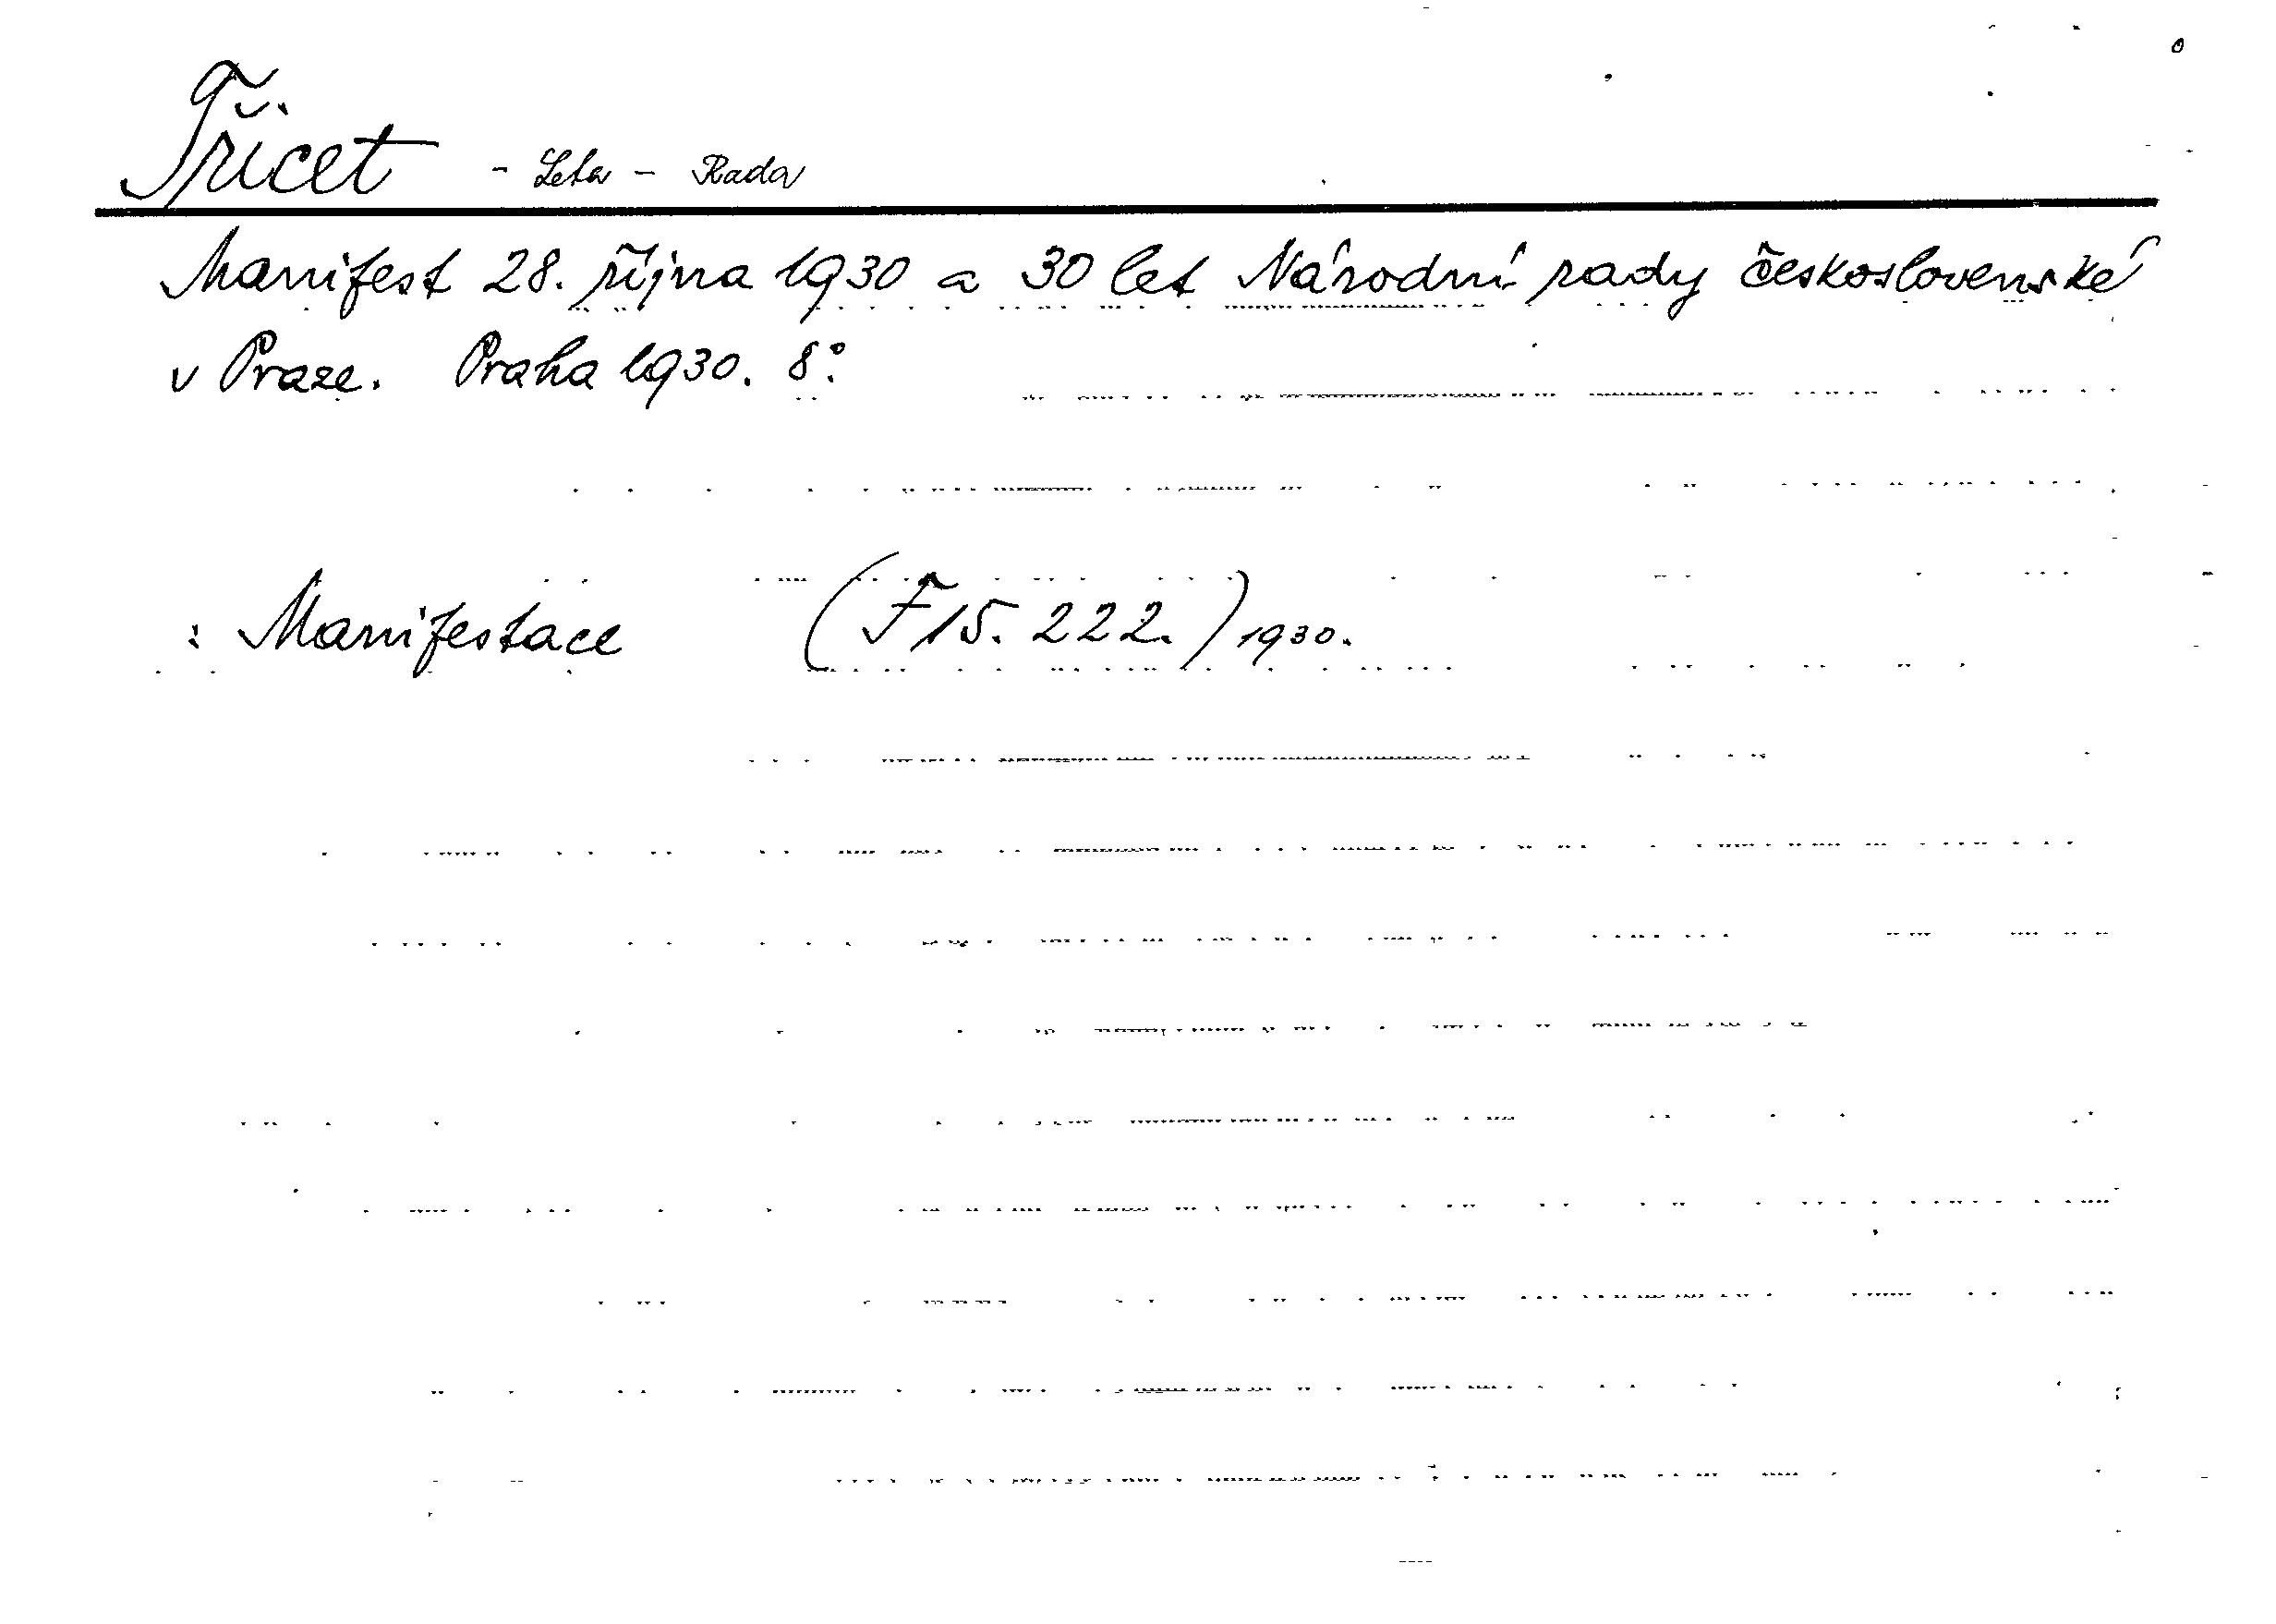 Třicet - Leta - Rada
Manifest 28. října 1930 a 30 let Národní rady československé
v Praze. Praha 1930. 8°.
: Manifestace (F 15. 222.) 1930.